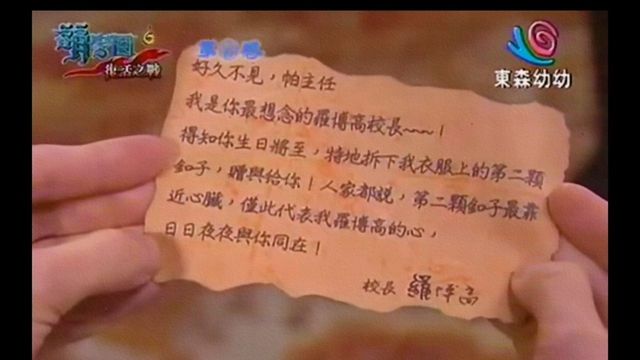 復活之戰
東森幼幼
好久不見，帕主任
我是你最想念的羅博高校長~~~！
得知你生日將至，特地拆下我衣服上的第二顆
釦子，贈與給你！人家都說，第二顆釦子最靠
近心臟，僅此代表我羅博高的心，
日日夜夜與你同在！
校長 羅博高